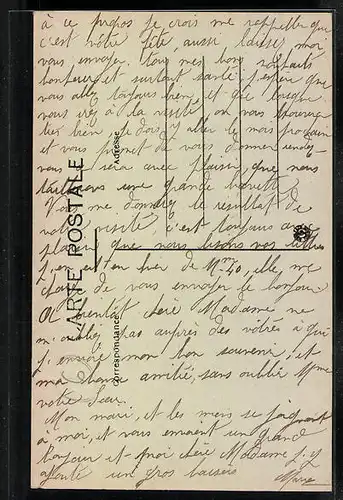 à ce propos je crois me rappeller que
c'est vôtre fête, aussi laissez moi
vous envoyer tous mes bons souhaits
bonheur et surtout santé j'espère que
vous allez toujours bien, et que lorsque
vous irez à la visite, on vous trouvera
très bien, je dois y aller le mois prochain
et vous promet de vous donner rendez-
vous sera avec plaisir, que nous
taillerons une grande bavette
Vous me donnerez le résultat de
votre visite, c'est toujours avec
plaisir que nous lisons vos lettres
j'en ai eu hier de Mme, elle me
charge de vous envoyer le bonjour
A bientôt chère Madame ne
m'oubliez pas auprès des vôtres à qui
j'envoie mon bon souvenir, et
ma bonne amitié, sans oublier Mme
votre Sœur.
Mon mari, et les miens se joignent
à moi, et vous envoient un grand
bonjour et moi chère Madame j'y
ajoute un gros baiser
CARTE POSTALE
Correspondance
Adresse